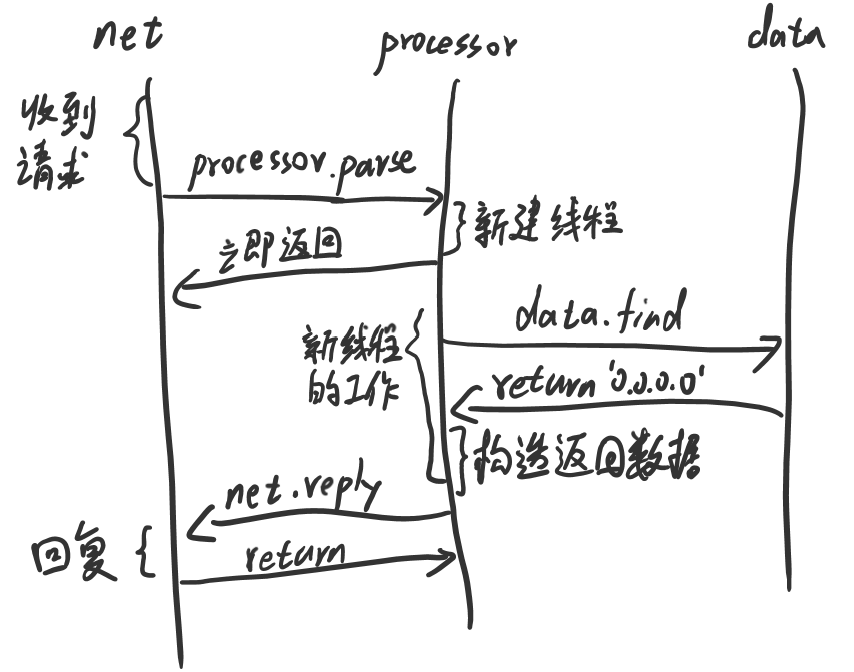 net
processor
data
收到
请求
processor.parse
新建线程
立即返回
data.find
新线程
的工作
return '0.0.0.0'
构造返回数据
net.reply
回复
return